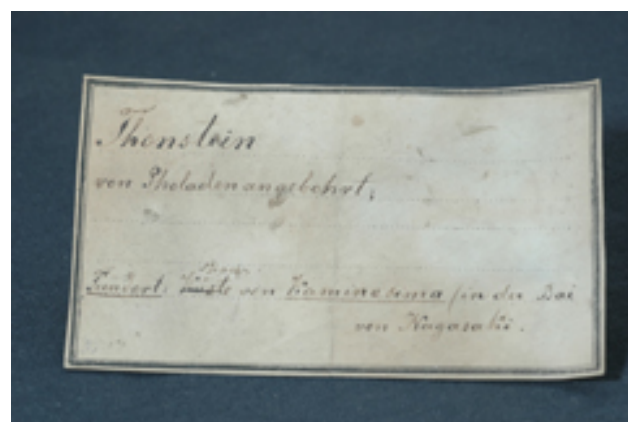 Thonstein
von Pholaden angebohrt;
Fundort: von Kaminosima (in der Bai
von Nagasaki.